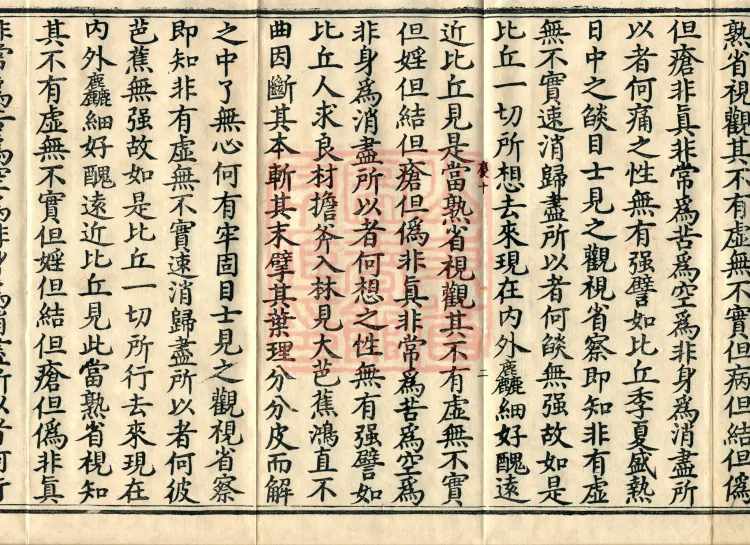 熟省視觀其不有虛無不實但病但結但僞
但瘡非眞非常爲苦爲空爲非身爲消盡所
以者何痛之性無有强譬如比丘季夏盛熱
日中之燄目士見之觀視省察即知非有虛
無不實速消歸盡所以者何燄無强故如是
比丘一切所想去來現在内外麤細好醜遠
慶十 二
近比丘見是當熟省視觀其不有虛無不實
但婬但結但瘡但僞非眞非常爲苦爲空爲
非身爲消盡所以者何想之性無有强譬如
比丘人求良材擔斧入林見大芭蕉鴻直不
曲因斷其本斬其末擘其葉理分分皮而解
之中了無心何有牢固目士見之觀視省察
即知非有虛無不實速消歸盡所以者何彼
芭蕉無强故如是比丘一切所行去來現在
内外麤細好醜遠近比丘見此當熟省視知
其不有虛無不實但婬但結但瘡但僞非眞
非常爲苦爲空爲非身爲消盡所以者何行